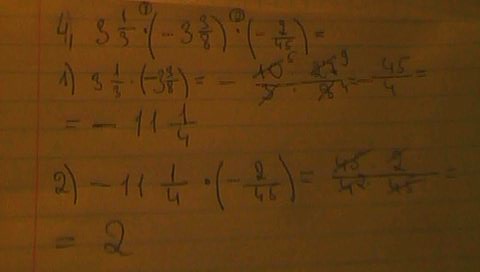 4, 3 1/3 ①· (- 3 3/8) ②· (- 2/45) =
1) 3 1/3 · (-3 3/8) = - 10 5 · 27 9 / 3 · 8 4 = - 45/4 =
= - 11 1/4
2) - 11 1/4 · (- 2/45) = 45 2 / 4 2 45 =
= 2